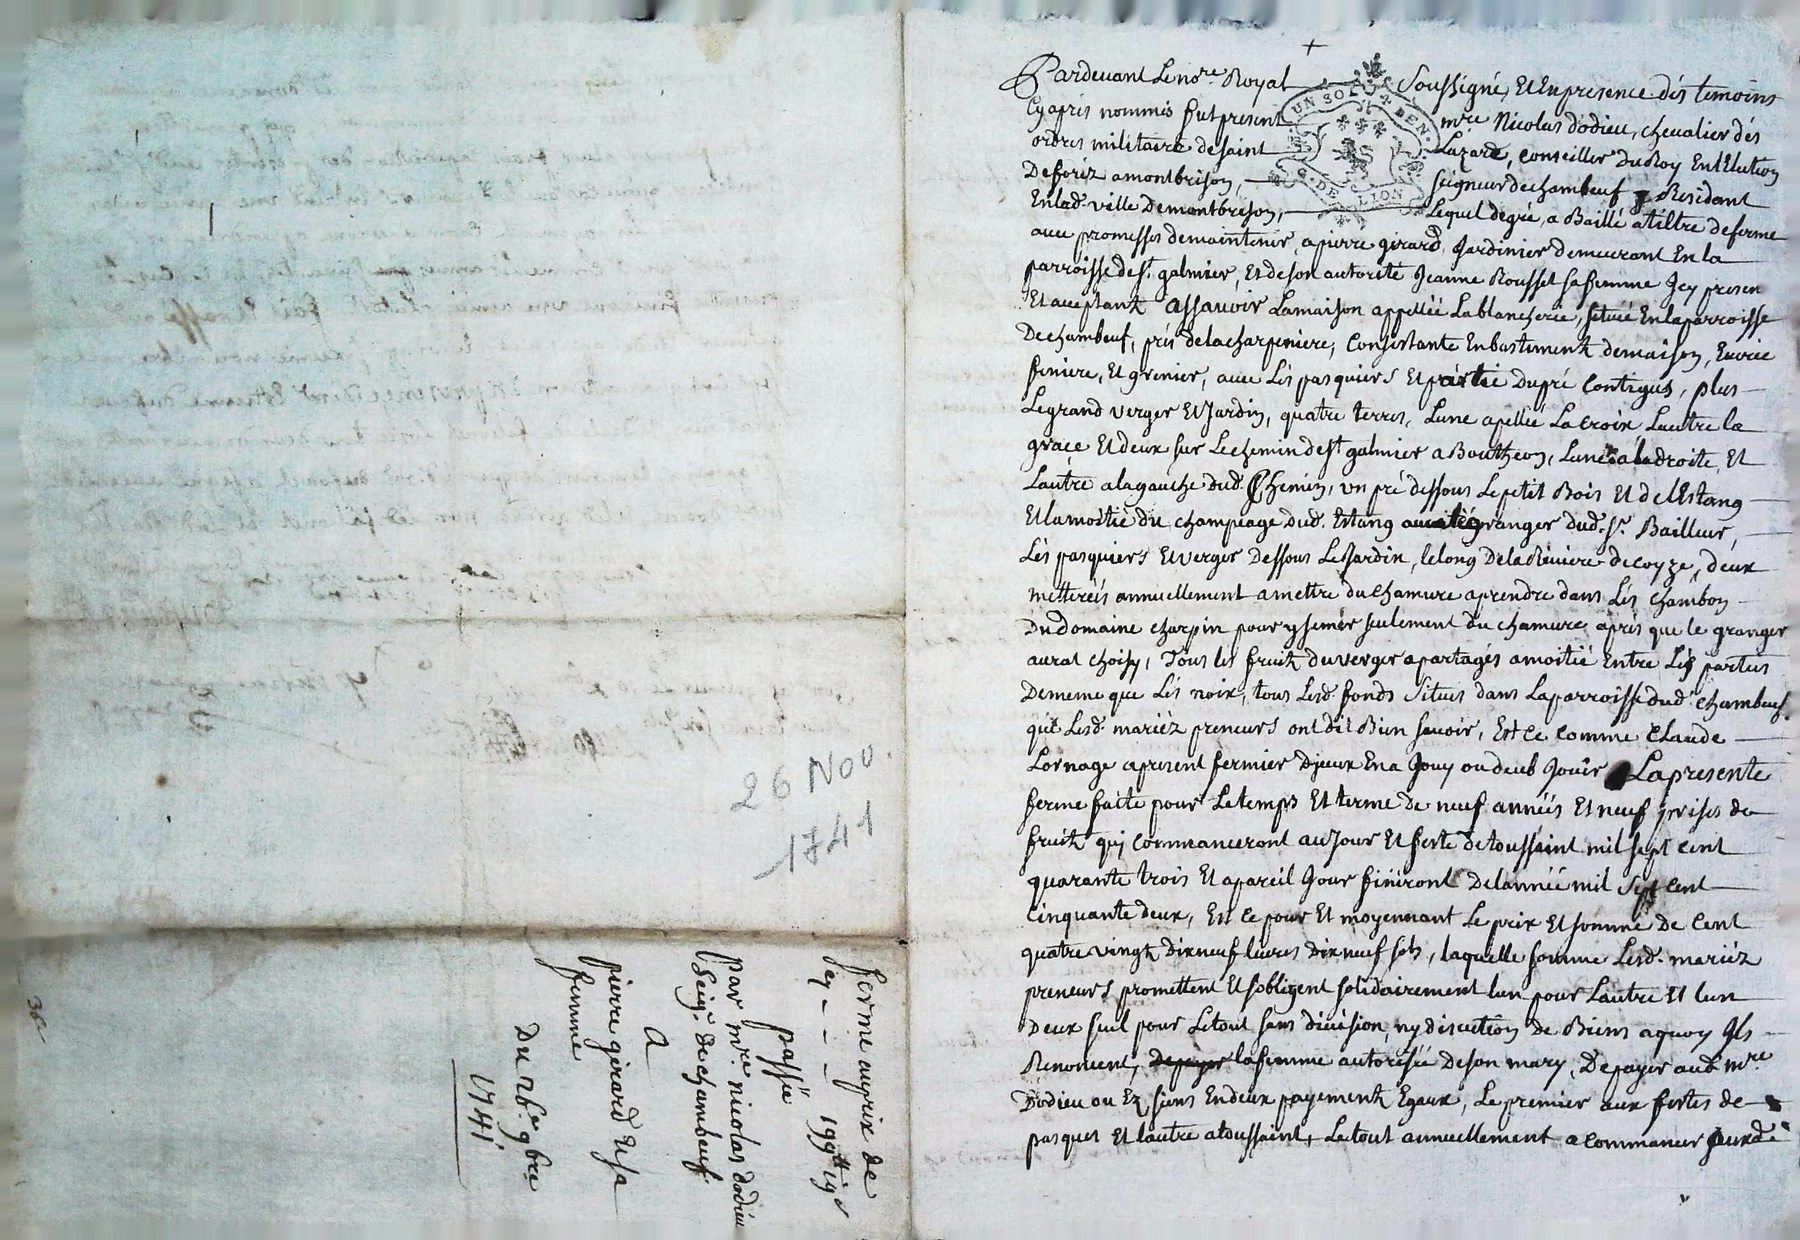 26 Nov.
1741
ferme au prix de
199tt 19s
passée
par mre nicolas dodieu
seigr de chambeuf
A
pierre girard et sa
femme
Du 26e 9bre
1741
36
+
UN SOL DEN.
G. DE LION
Pardevant Le nore Royal Soussigné, Et En presence dés temoins
Cy aprés nommés fut present mre Nicolas dodieu, chevalier dés
ordres militaire de saint Lazare, conseiller Du Roy En LElection
De forez a montbrison, seigneur de chambeuf Residant
En lad. ville De montbrison, Lequel de gré, a Baillé a tiltre de ferme
avec promesses de maintenir, a pierre girard Jardinier demeurant En la
parroisse de st. galmier, Et de son autorité Jeanne Rousset sa femme Jcy presen
Et acceptant assavoir La maison appellée La blancherie, située En la parroisse
De chambeuf, prés de la charpiniere, Consistante En bastiment de maison, Ecurie
feniere, Et grenier, avec Lés pasquiers Et partie Du pré contigus, plus
Le grand verger Et Jardin, quatre terres, Lune apellée La croix Lautre la
grace Et deux sur Le chemin de st galmier a Boutheon, Lune a la droite, Et
Lautre a la gauche dud. Chemin, un pré dessous Le petit Bois Et de lEstang
Et la moitié du champeage dud. Estang avec le granger dud. sr. Bailleur,
Lés pasquiers Et verger Dessous Le Jardin, le long De la Riviere de coyze, deux
metterées annuellement a mettre du chamure a prendre dans Lés chambon
Du domaine charpin pour y semér seulement du chamure aprés que le granger
aurat choisy, Tous les fruit du verger a partagés a moitié Entre Lés parties
De meme que Lés noix, tous Lesd. fonds situés dans La parroisse dud. chambeuf
que Lesd. mariéz preneurs ont dit Bien savoir, Et Ce Comme Claude
Lornage a present fermier Djceux En a Jouy ou deub Jouir La presente
ferme faite pour Le temps Et terme de neuf années Et neuf prises de
fruit quj Commanceront au Jour Et feste de toussaint mil sept cent
quarante trois Et a pareil Jour finiront De lannée mil sept cent
Cinquante deux, Et Ce pour Et moyennant Le prix Et somme de Cent
quatre vingt dix neuf livres dix neuf sols, laquelle somme Lesd. mariéz
preneurs promettent Et sobligent solidairement lun pour Lautre Et lun
Deux seul pour Le tout sans division, ny discution de Biens a quoy Jls
Renoncent, De payer la femme autorisée De son mary, De payer aud. mre
Dodieu ou Ez siens En deux payement Egaux, Le premier aux festes de
pasques Et lautre a toussaint, Le tout annuellement a commancer aux de